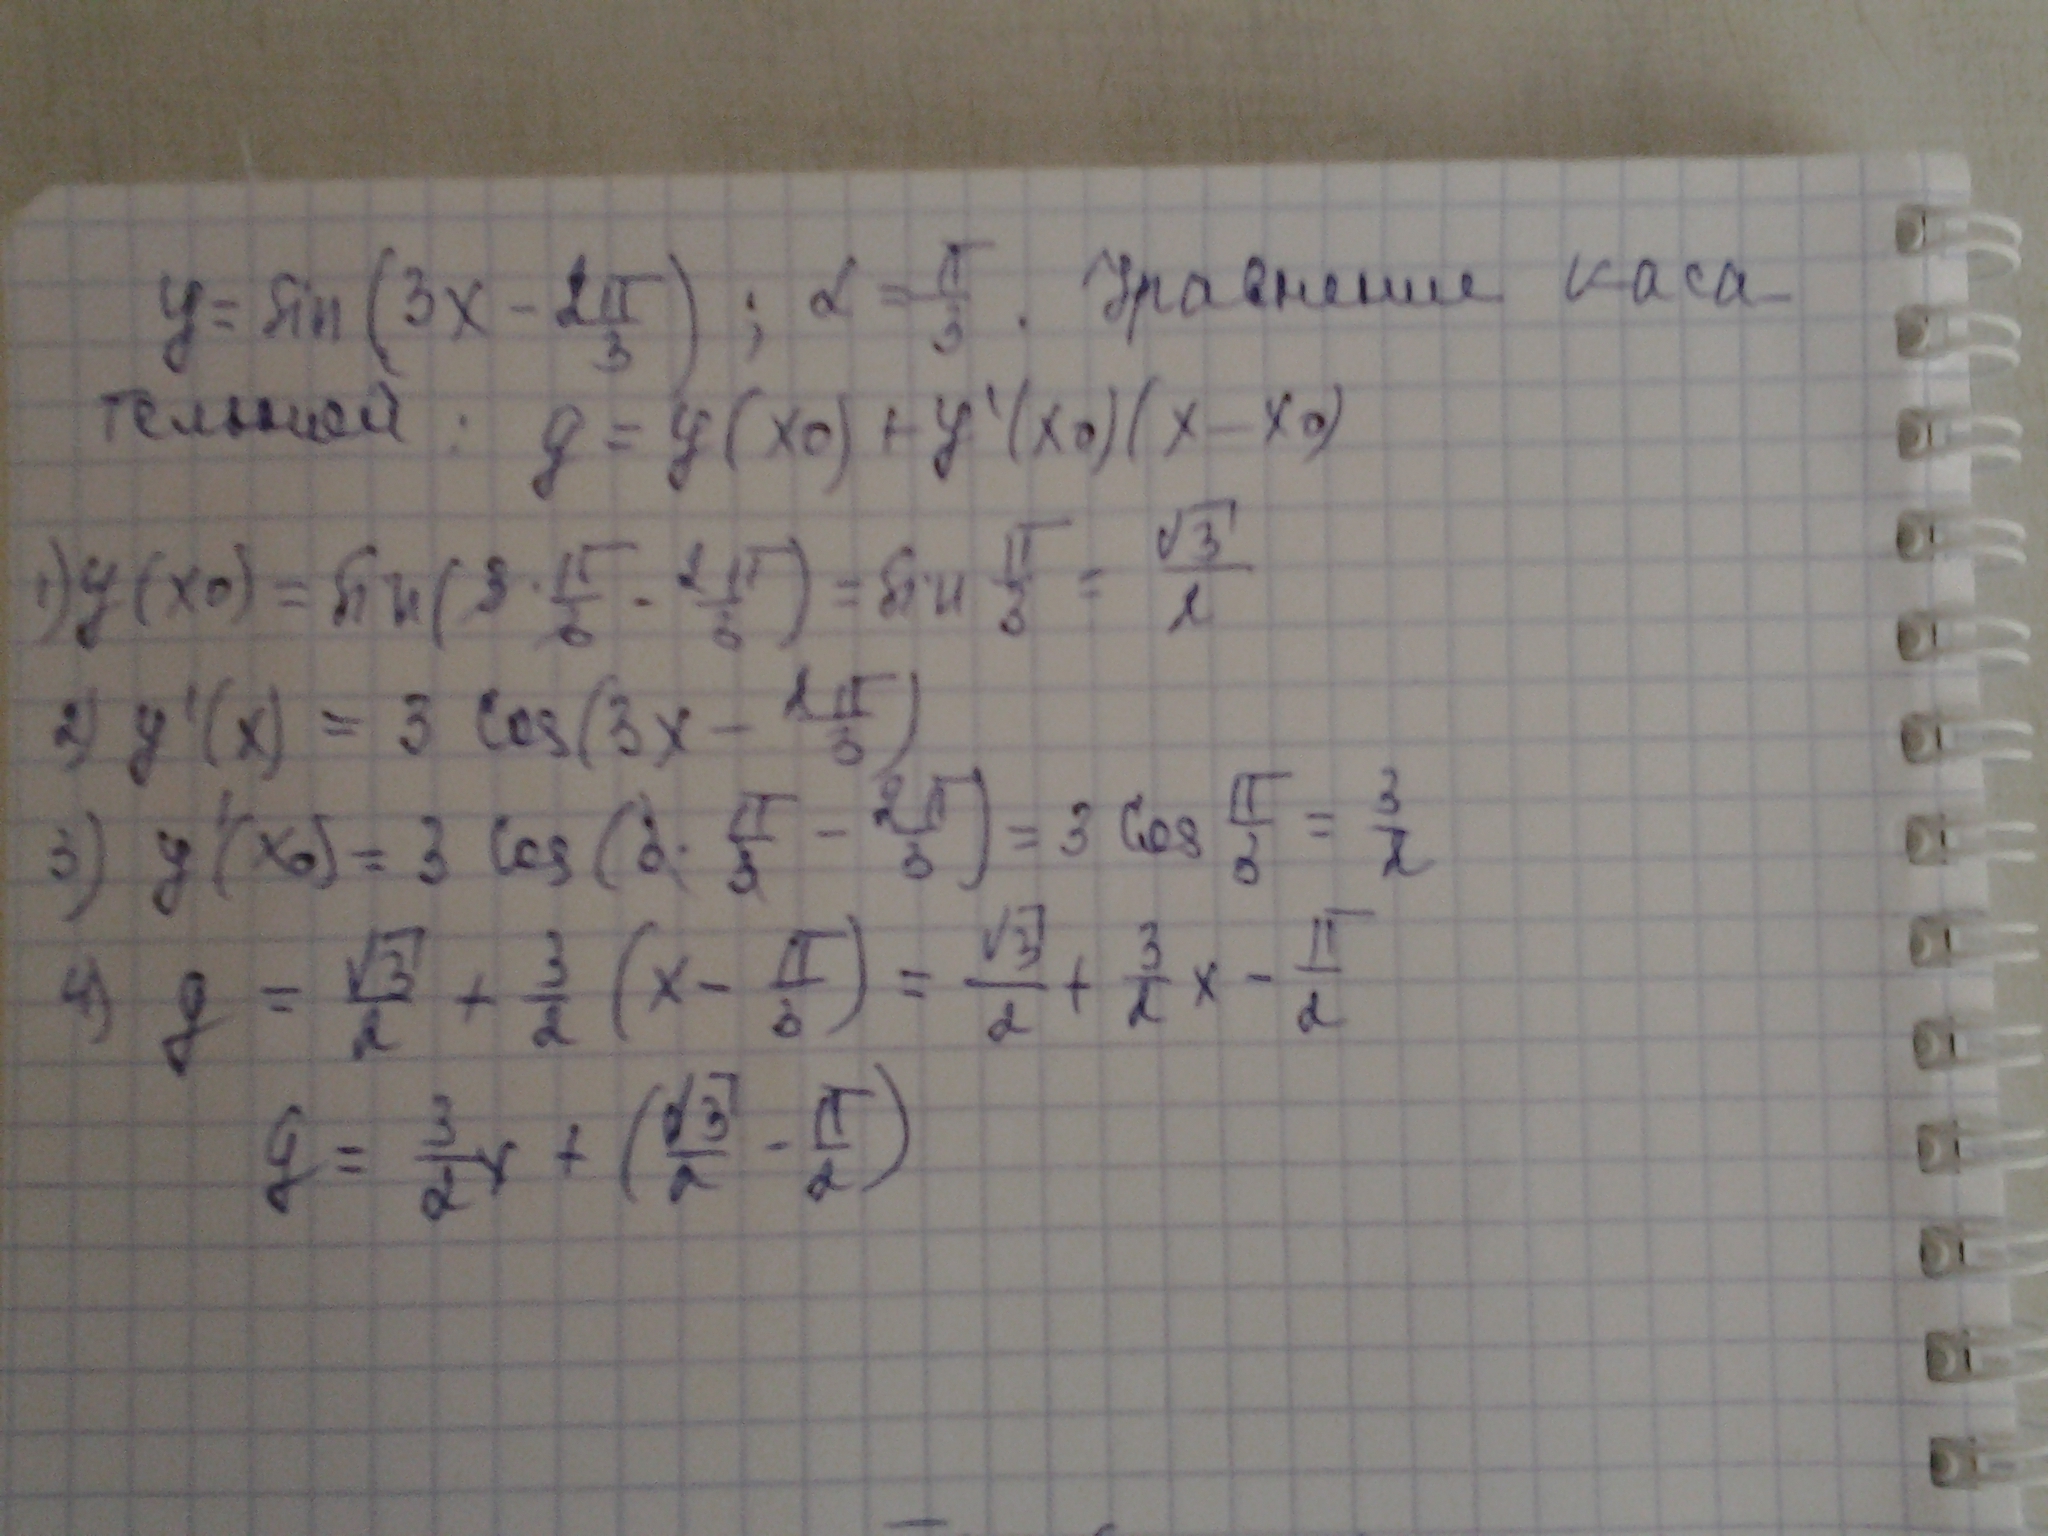 y = sin(3x - 2π/3) ; α = π/3 . Уравнение каса-
тельной : y = y(x0) + y'(x0)(x - x0)
1) y(x0) = sin(3 · π/3 - 2π/3) = sin π/3 = √3/2
2) y'(x) = 3 cos(3x - 2π/3)
3) y'(x0) = 3 cos(3 · π/3 - 2π/3) = 3 cos π/3 = 3/2
4) y = √3/2 + 3/2 (x - π/3) = √3/2 + 3/2 x - π/2
y = 3/2 x + (√3/2 - π/2)